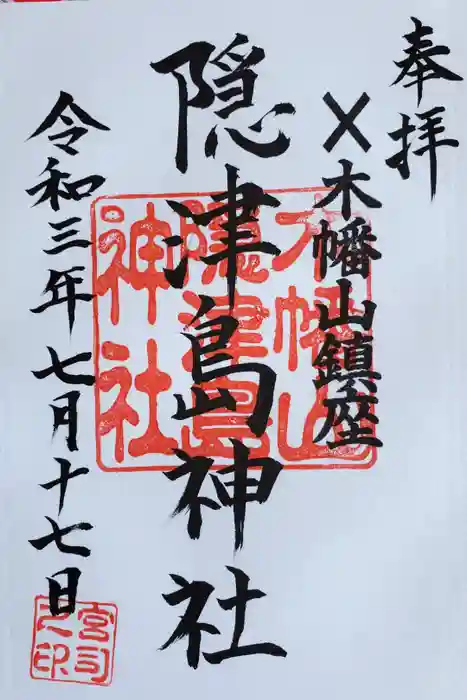 奉拝
〆木幡山鎮座
隠津島神社
令和三年七月十七日
木幡山
隠津島
神社
宮司
之印